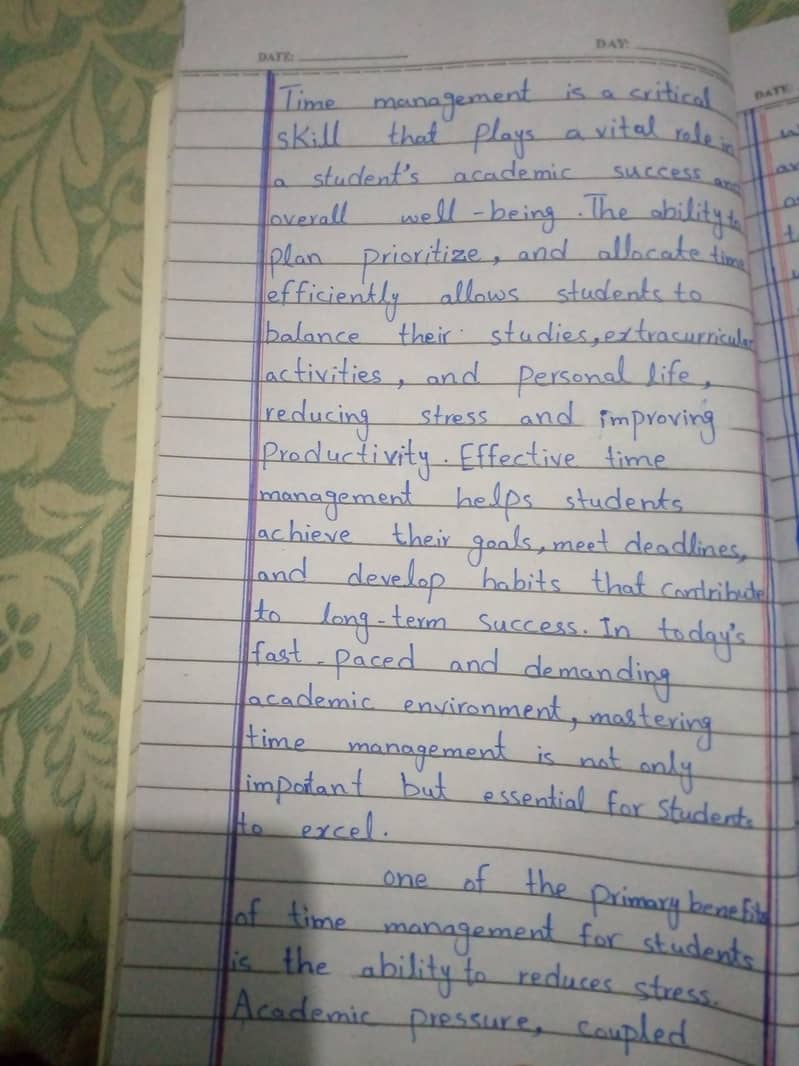 DATE: DAY:
Time management is a critical
skill that plays a vital role in
a student's academic success and
overall well-being. The ability to
plan prioritize, and allocate time
efficiently allows students to
balance their studies, extracurricular
activities, and personal life,
reducing stress and improving
Productivity. Effective time
management helps students
achieve their goals, meet deadlines,
and develop habits that contribute
to long-term success. In today's
fast-paced and demanding
academic environment, mastering
time management is not only
important but essential for students
to excel.
one of the primary benefits
of time management for students
is the ability to reduces stress.
Academic pressure, coupled
DATE